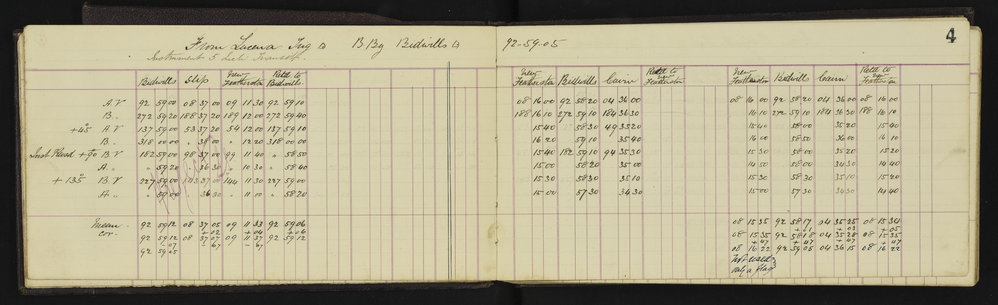 4
From Lucena Trig △ B By Bidwills △ 92-59-05
Instrument 5 inch Transit.
Bidwills Slip New Featherston Retd to Bidwills
New Featherston Bidwills Cairn Retd to New Featherston
New Featherston Bidwills Cairn Retd to New Featherston
A V 92 59 00 08 37 00 09 11 30 92 59 10
08 16 00 92 58 20 04 36 00
08 16 00 92 58 20 04 36 00 08 16 00
B. 272 59 20 188 37 20 189 12 00 272 59 40
188 16 10 272 59 10 184 36 30
16 10 272 59 10 184 36 30 188 16 10
+45° A V 137 59 00 53 37 20 54 12 00 137 59 10
15 40 58 30 49 35 20
15 40 58 00 35 20 15 40
B. 318 00 00 " 38 00 " 12 20 318 00 00
16 20 59 10 35 40
16 00 58 50 36 00 16 10
+90 B V 182 59 00 98 37 00 99 11 40 " 58 50
15 40 182 59 10 94 35 30
15 30 58 00 35 20 15 20
A. " 59 20 " 36 30 " 10 30 " 58 40
15 00 58 20 35 00
14 50 58 00 34 30 14 40
+ 135° B V 227 59 00 143 37 00 144 11 30 227 59 00
15 30 58 30 35 10
15 30 58 30 35 10 15 20
A " 59 00 " 36 30 " 11 10 " 58 20
15 00 57 30 34 30
15 00 57 30 34 30 14 40
Mean 92 59 12 08 37 05 09 11 33 92 59 06
08 15 35 92 58 17 04 35 25 08 15 31
Cor. +02 +04 +06
92 59 12 08 37 07 09 11 37 92 59 12
08 15 35 92 58 18 04 35 28 08 15 35
+47 +47 +47 +47
92 59 05
08 16 22 92 59 05 04 36 15 08 16 22
Not used
only a flag